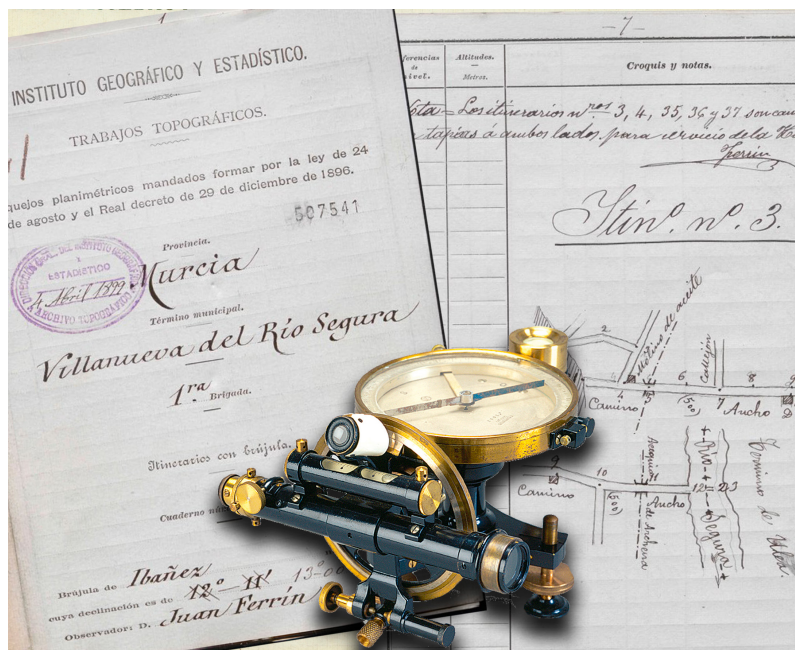 1
INSTITUTO GEOGRÁFICO Y ESTADÍSTICO.
TRABAJOS TOPOGRÁFICOS.
quejos planimétricos mandados formar por la ley de 24
de agosto y el Real decreto de 29 de diciembre de 1896.
507541
DIRECCIÓN GRAL. DEL INSTITUTO GEOGRÁFICO
Y
ESTADÍSTICO
4 Abril 1899
ARCHIVO TOPOGRÁFICO
Provincia.
Murcia
Término municipal.
Villanueva del Río Segura
1ra Brigada.
Itinerarios con brújula.
Cuaderno
Brújula de Ibañez
cuya declinación es de 12º-11' 13º
Observador: D. Juan Ferrín
-7-
ferencias
de
nivel.
Altitudes.
Metros.
Croquis y notas.
Los itinerarios nros 3, 4, 35, 36 y 37 son
tapias a ambos lados para servicio de la
Ferrín
Itinº. nº. 3.
2
Molino de aceite
Callejón
4 5 6 7 8 9
(500)
Camino Ancho
2
Camino
10
(500)
11
Ancho
12 13
Acequia
de Archena
Río Segura
Término de